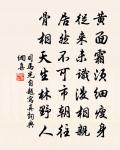 黄面霜须细瘦身
从来未识漫相亲
居然不可市朝住
骨相天生林野人
司马光自题写真词典
网喜